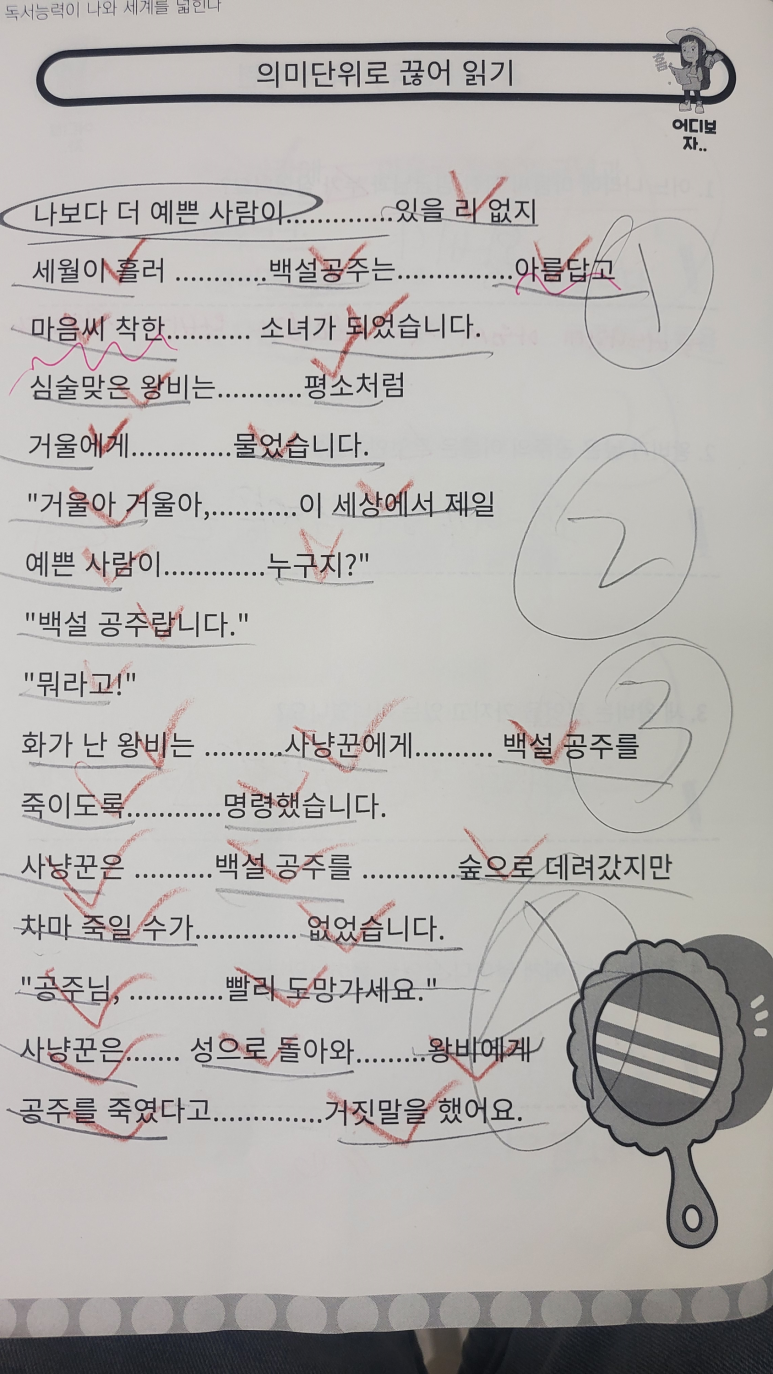 독서능력이 나와 세계를 넓힌다
의미단위로 끊어 읽기
홈
어디보
자..
나보다 더 예쁜 사람이..............있을 리 없지
세월이 흘러 ............백설공주는...............아름답고
마음씨 착한.......... 소녀가 되었습니다.
심술맞은 왕비는...........평소처럼
거울에게.............물었습니다.
"거울아 거울아,...........이 세상에서 제일
예쁜 사람이.............누구지?"
"백설 공주랍니다."
"뭐라고!"
화가 난 왕비는 ..........사냥꾼에게.......... 백설 공주를
죽이도록............명령했습니다.
사냥꾼은 ..........백설 공주를 ............숲으로 데려갔지만
차마 죽일 수가............. 없었습니다.
"공주님, ............빨리 도망가세요."
사냥꾼은....... 성으로 돌아와.........왕비에게
공주를 죽였다고..............거짓말을 했어요.
1
2
3